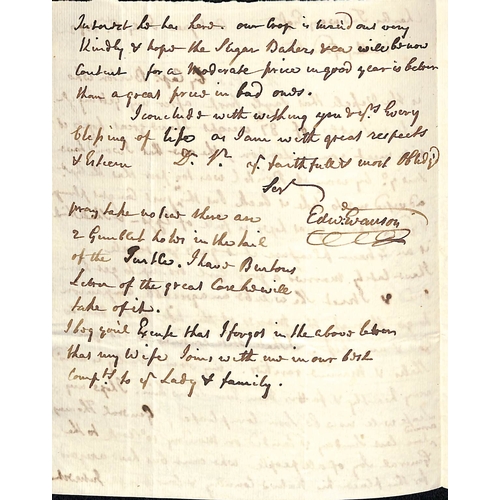 Interest he has here. our Crop is turnd out very
Kindly & hope the Sugar Bakers &ca will be now
Content for a Moderate price in good year is better
than a great price in bad ones.
I conclude with wishing you & yrs Every
blessing of life as I am with great respects
& Esteem Dr Sr yr faithfull & most Obedt
Servt
Edwd Evanson
pray take notice there are
2 Gimblet holes in the tail
of the Turtle. I have Burtons
Letter of the great Care he will
take of it.
I beg you'l Excuse that I forgot in the above letter
that my Wife Joins with me in our best
Compts to yr Lady & family.